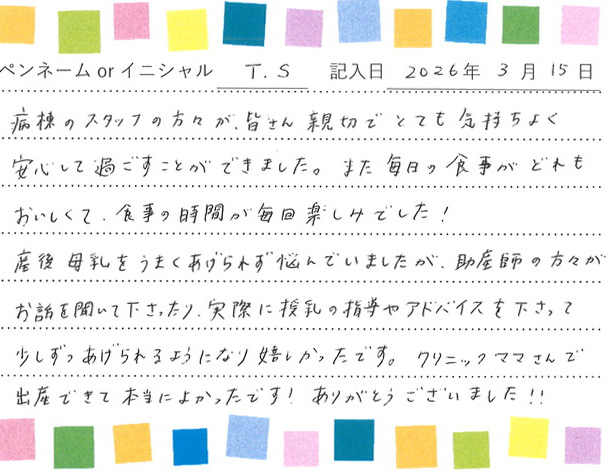 ペンネーム or イニシャル T.S 記入日 2026年 3月 15日
病棟のスタッフの方々が、皆さん親切でとても気持ちよく
安心して過ごすことができました。また毎日の食事がどれも
おいしくて、食事の時間が毎回楽しみでした!
産後母乳をうまくあげられず悩んでいましたが、助産師の方々が
お話を聞いて下さったり、実際に授乳の指導やアドバイスを下さって
少しずつあげられるようになり嬉しかったです。クリニックママさんで
出産できて本当によかったです! ありがとうございました!!